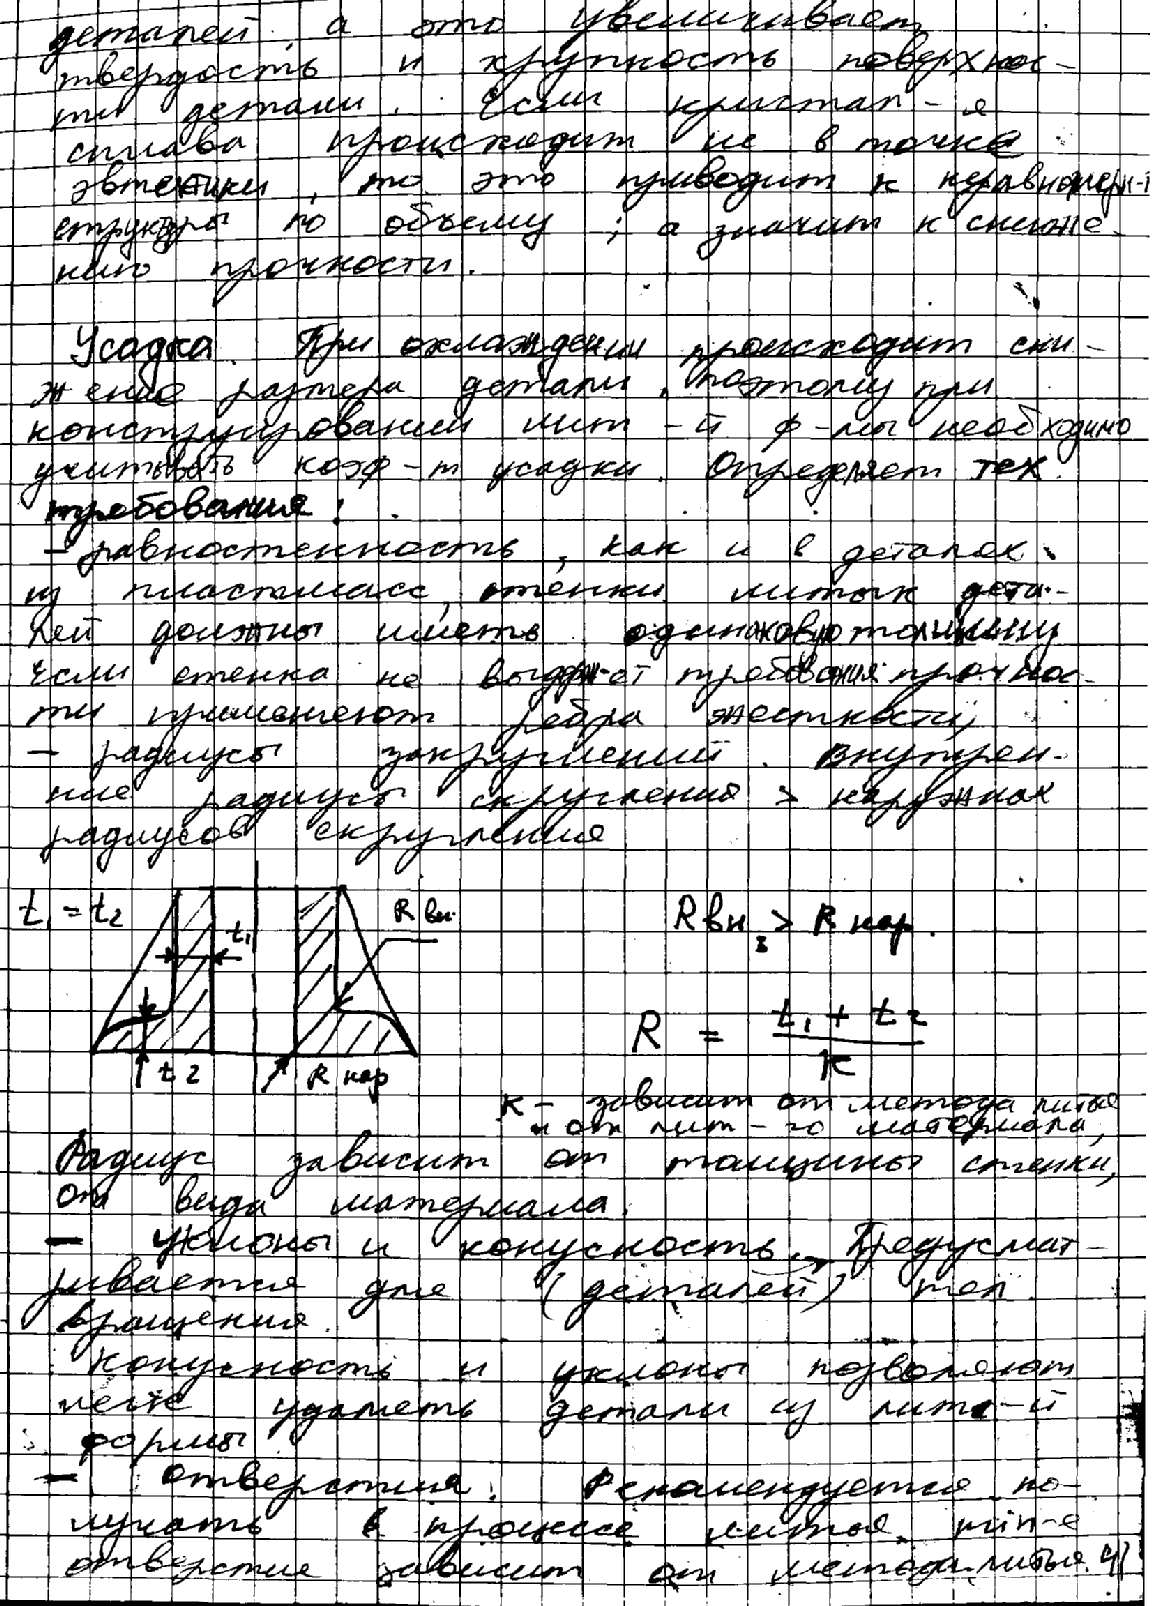 деталей, а это увеличивает
твердость и хрупкость поверхнос-
ти детали. Если кристал-я
сплава происходит не в точке
эвтектики, то это приводит к неравномерн-и
структуры по объему; а значит к сниже-
нию прочности.
Усадка. При охлаждении происходит сни-
жение размера детали, поэтому при
конструировании лит-й ф-мы необходимо
учитывать коэф-т усадки. Определяет тех
требования:
- равностенность, как и в деталях
из пластмасс, стенки литых дета-
лей должны иметь одинаковую толщину
Если стенка не выдерж-ет требования прочнос-
ти применяют ребра жесткости,
- радиусы закруглений. Внутрен-
ние радиусы скругления > наружных
радиусов скругления
t₁ = t₂
t₁
R вн.
Rвн > R нар.
R = (t₁ + t₂) / k
t₂
R нар
к - зависит от метода литья
и от лит-го материала,
Радиус зависит от толщины стенки,
от вида материала.
- Уклоны и конусность. Предусмат-
ривается для (деталей) тел
вращения.
Конусность и уклоны позволяют
легче удалять детали из лит-й
формы
- Отверстия. Рекомендуется по-
лучать в процессе литья, min-е
отверстие зависит от метода литья и